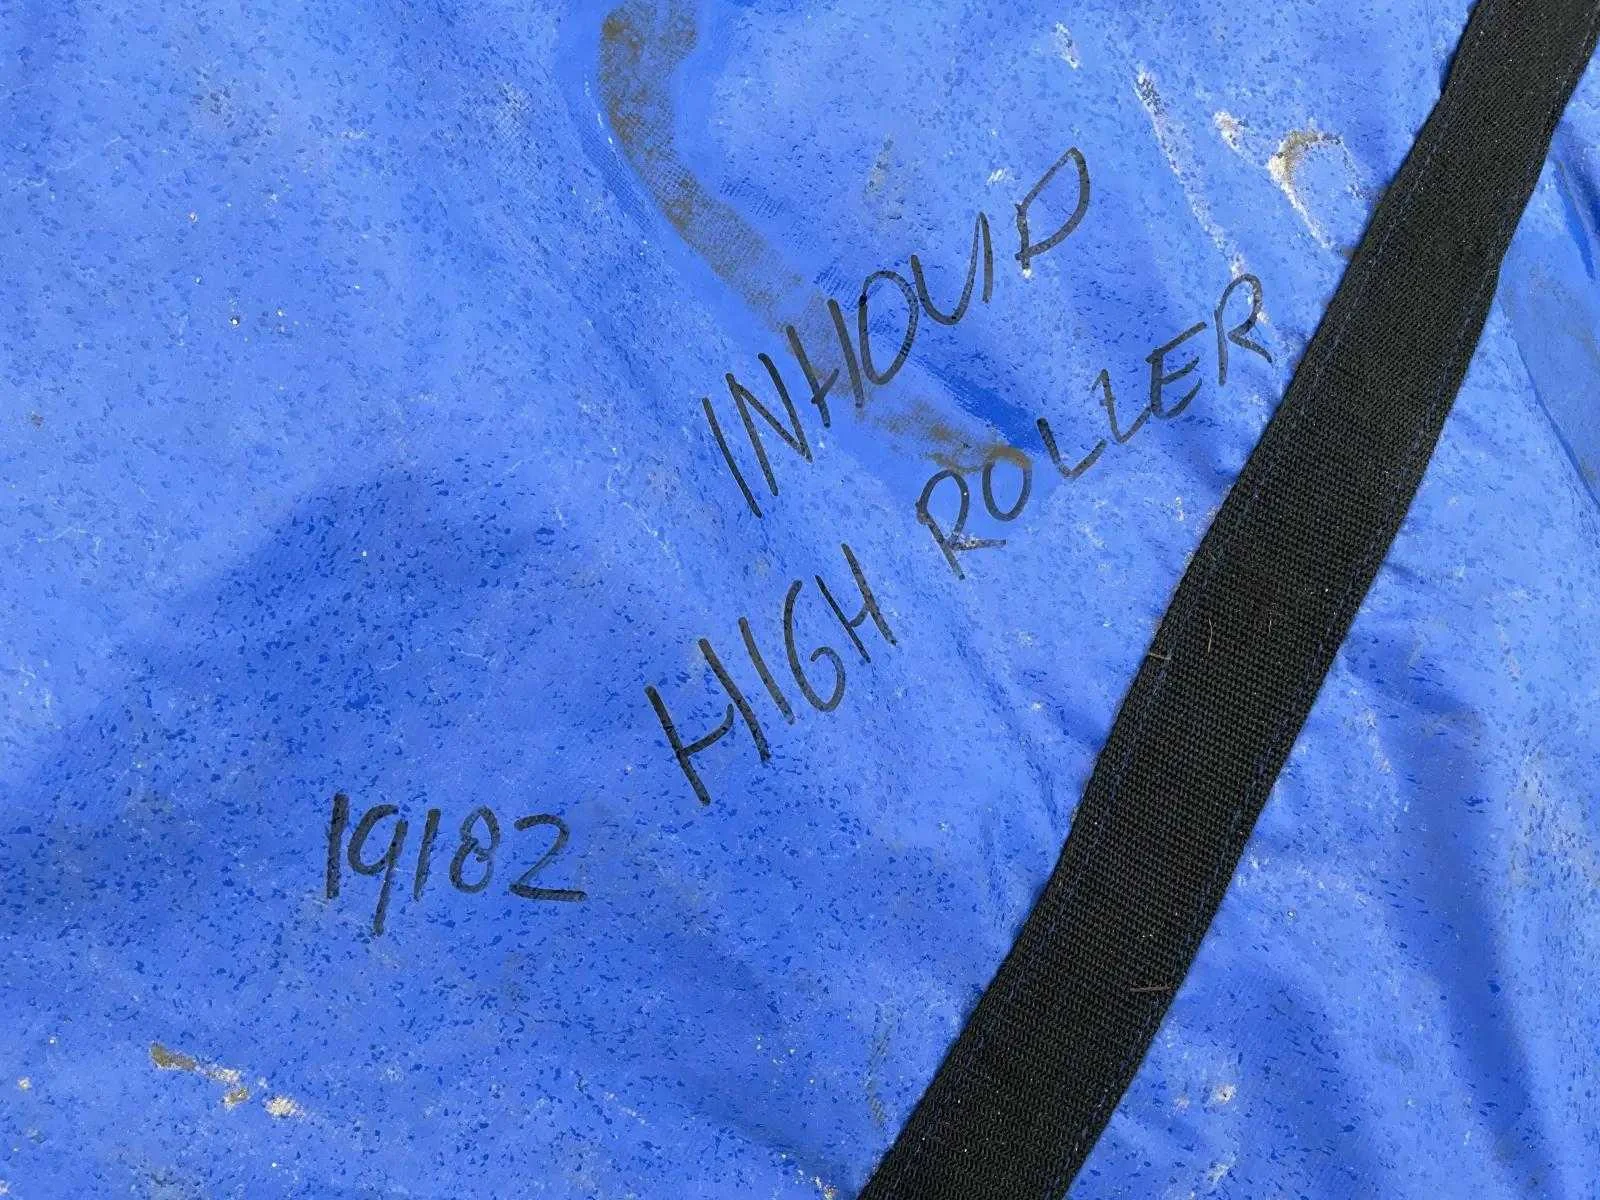 INHOUD
HIGH ROLLER
19182